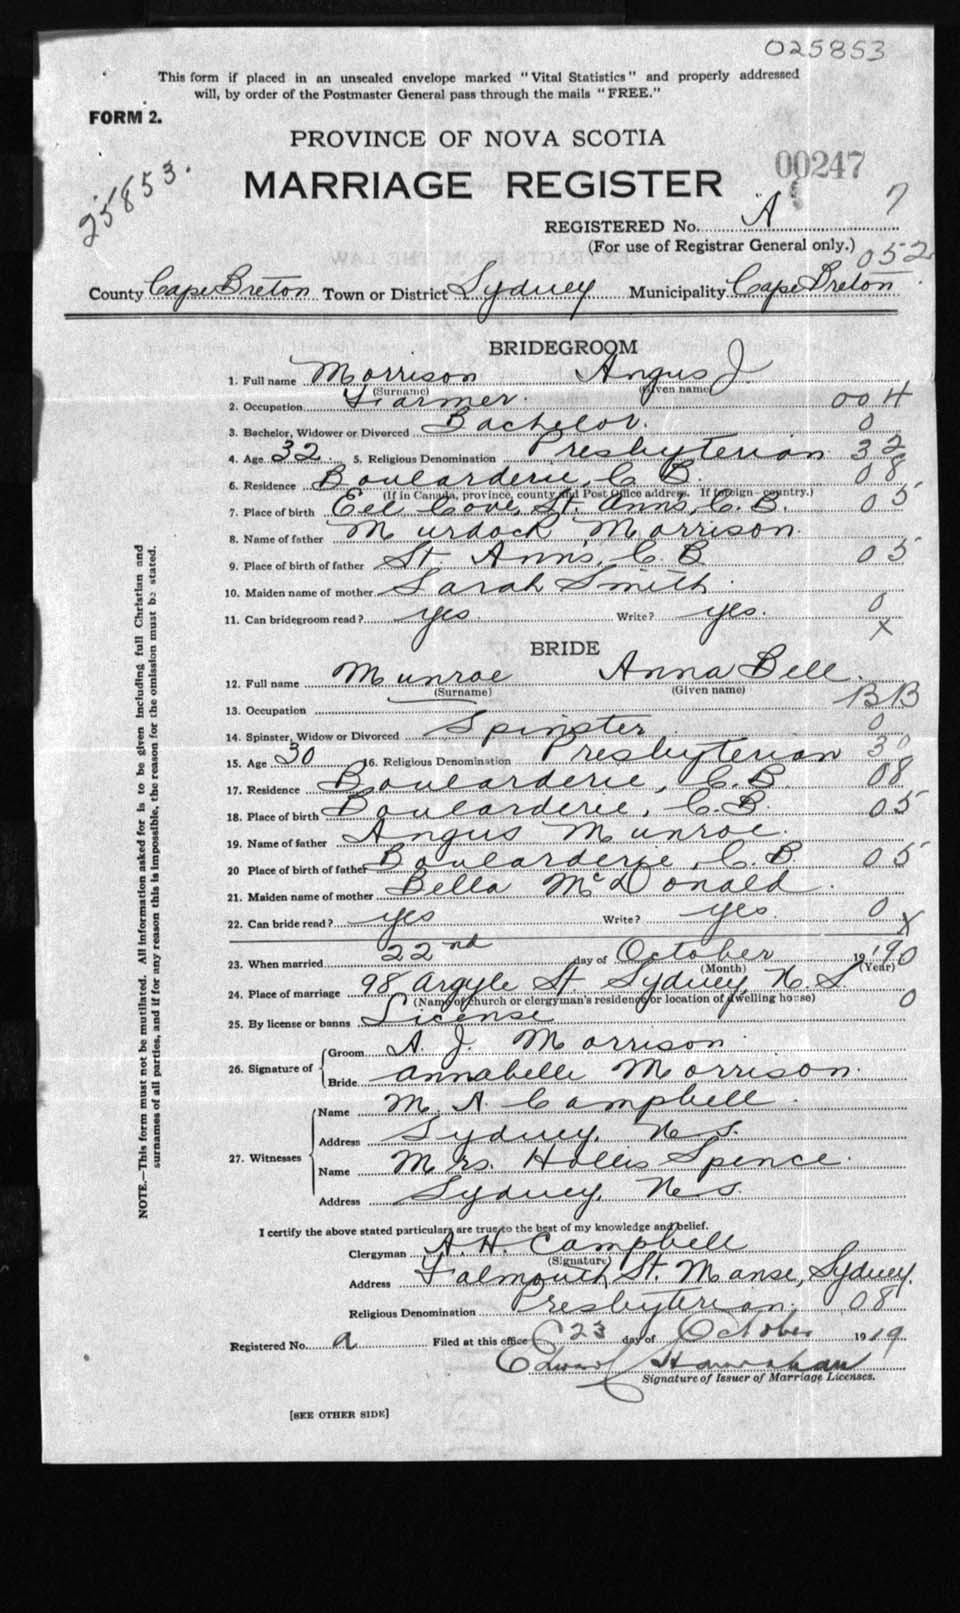 025853
This form if placed in an unsealed envelope marked "Vital Statistics" and properly addressed
will, by order of the Postmaster General pass through the mails "FREE."
FORM 2.
PROVINCE OF NOVA SCOTIA
25853.
00247
MARRIAGE REGISTER
REGISTERED No. A 7
(For use of Registrar General only.) 052
County Cape Breton Town or District Sydney Municipality Cape Breton
BRIDEGROOM
1. Full name Morrison Angus J.
(Surname) (Given name)
2. Occupation Farmer. 004
3. Bachelor, Widower or Divorced Bachelor. 0
4. Age 32. 5. Religious Denomination Presbyterian 32
6. Residence Boularderie, C. B. 08
(If in Canada, province, county and Post Office address. If foreign country.)
7. Place of birth Eel Cove, St. Anns, C. B. 05
8. Name of father Murdock Morrison.
9. Place of birth of father St. Anns, C. B 05
10. Maiden name of mother Sarah Smith.
11. Can bridegroom read? yes Write? yes. 0
X
BRIDE
12. Full name Munroe Anna Bell.
(Surname) (Given name)
13. Occupation BB
14. Spinster, Widow or Divorced Spinster 0
15. Age 30 16. Religious Denomination Presbyterian 30
17. Residence Boularderie, C. B. 08
18. Place of birth Boularderie, C. B 05
19. Name of father Angus Munroe.
20 Place of birth of father Boularderie, C. B 05
21. Maiden name of mother Bella McDonald.
22. Can bride read? yes Write? yes. 0
X
23. When married 22nd day of October 19
(Month) (Year)
24. Place of marriage 98 Argyle St. Sydney, N. S
(Name of church or clergyman's residence or location of dwelling house) 0
25. By license or banns License
26. Signature of
Groom A. J. Morrison
Bride Annabelle Morrison.
27. Witnesses
Name M. A Campbell.
Address Sydney, N. S.
Name Mrs. Hollis Spence.
Address Sydney, N. S.
I certify the above stated particulars are true to the best of my knowledge and belief.
Clergyman A. H. Campbell
(Signature)
Address Falmouth St. Manse, Sydney.
Religious Denomination Presbyterian. 08
Registered No. a Filed at this office 23 day of October 1919
Edward
Signature of Issuer of Marriage Licenses.
[SEE OTHER SIDE]
NOTE.—This form must not be mutilated. All information asked for is to be given including full Christian and
surnames of all parties, and if for any reason this is impossible, the reason for the omission must be stated.